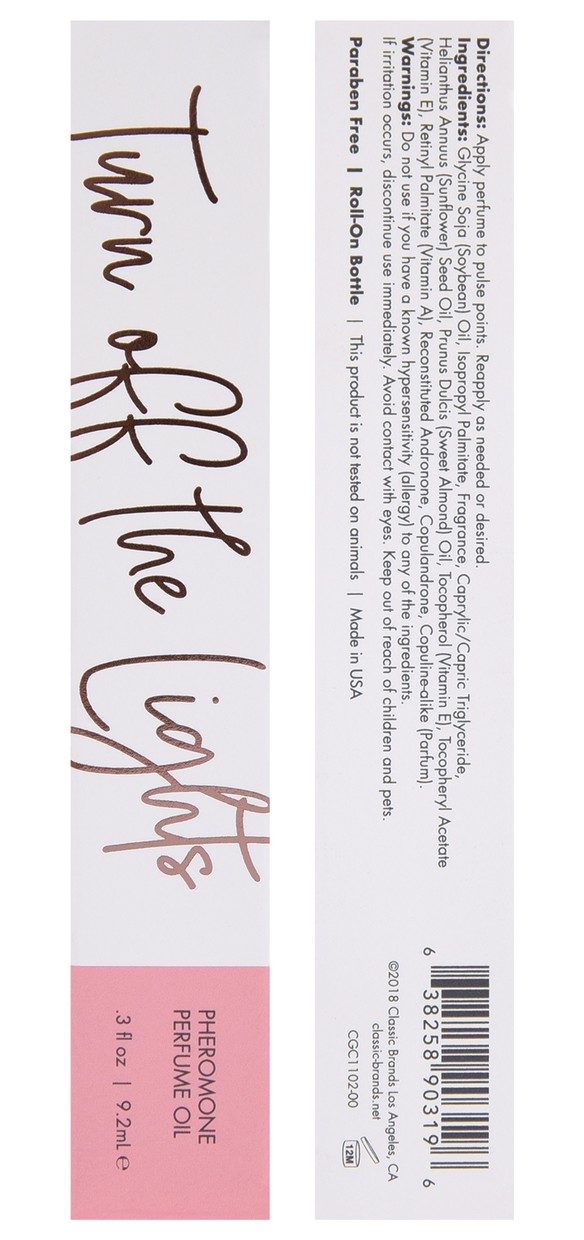 Turn off the Lights
PHEROMONE
PERFUME OIL
.3 fl oz | 9.2mL ℮
Directions: Apply perfume to pulse points. Reapply as needed or desired.
Ingredients: Glycine Soja (Soybean) Oil, Isopropyl Palmitate, Fragrance, Caprylic/Capric Triglyceride,
Helianthus Annuus (Sunflower) Seed Oil, Prunus Dulcis (Sweet Almond) Oil, Tocopherol (Vitamin E), Tocopheryl Acetate
(Vitamin E), Retinyl Palmitate (Vitamin A), Reconstituted Andronone, Copulandrone, Copuline-alike (Parfum).
Warnings: Do not use if you have a known hypersensitivity (allergy) to any of the ingredients.
If irritation occurs, discontinue use immediately. Avoid contact with eyes. Keep out of reach of children and pets.
Paraben Free | Roll-On Bottle | This product is not tested on animals | Made in USA
6 38258 90319 6
©2018 Classic Brands Los Angeles, CA
classic-brands.net
CGC1102-00
12M